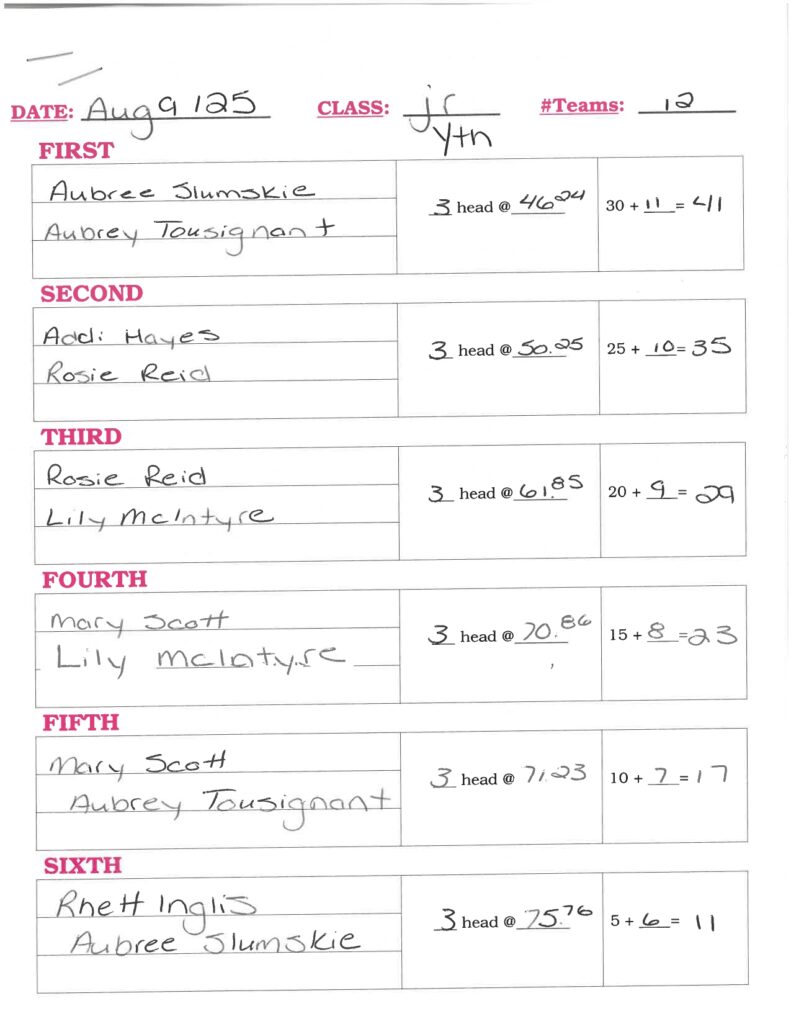 DATE: Aug 9 125 CLASS: jr Yth #Teams: 12
FIRST
Aubree Slumskie
Aubrey Tousignant
3 head @ 46.24
30 + 11 = 41
SECOND
Addi Hayes
Rosie Reid
3 head @ 50.25
25 + 10 = 35
THIRD
Rosie Reid
Lily McIntyre
3 head @ 61.85
20 + 9 = 29
FOURTH
Mary Scott
Lily McIntyre
3 head @ 70.86
15 + 8 = 23
FIFTH
Mary Scott
Aubrey Tousignant
3 head @ 71.23
10 + 7 = 17
SIXTH
Rhett Inglis
Aubree Slumskie
3 head @ 75.76
5 + 6 = 11